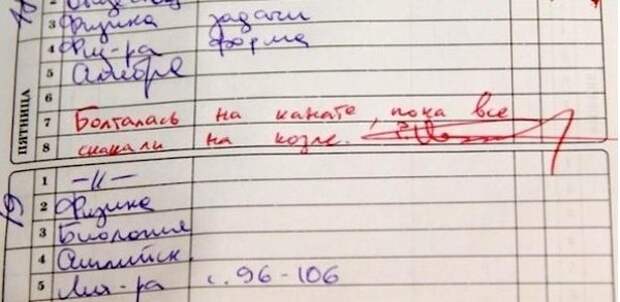 18
3 Физика задачи
4 Физ-ра форма
5 Алгебра
6
7 Болталась на канате, пока все
8 скакали на козле.
ПЯТНИЦА
19
1 -//-
2 Физика
3 Биология
4 Английск.
5 Лит-ра с. 96-106